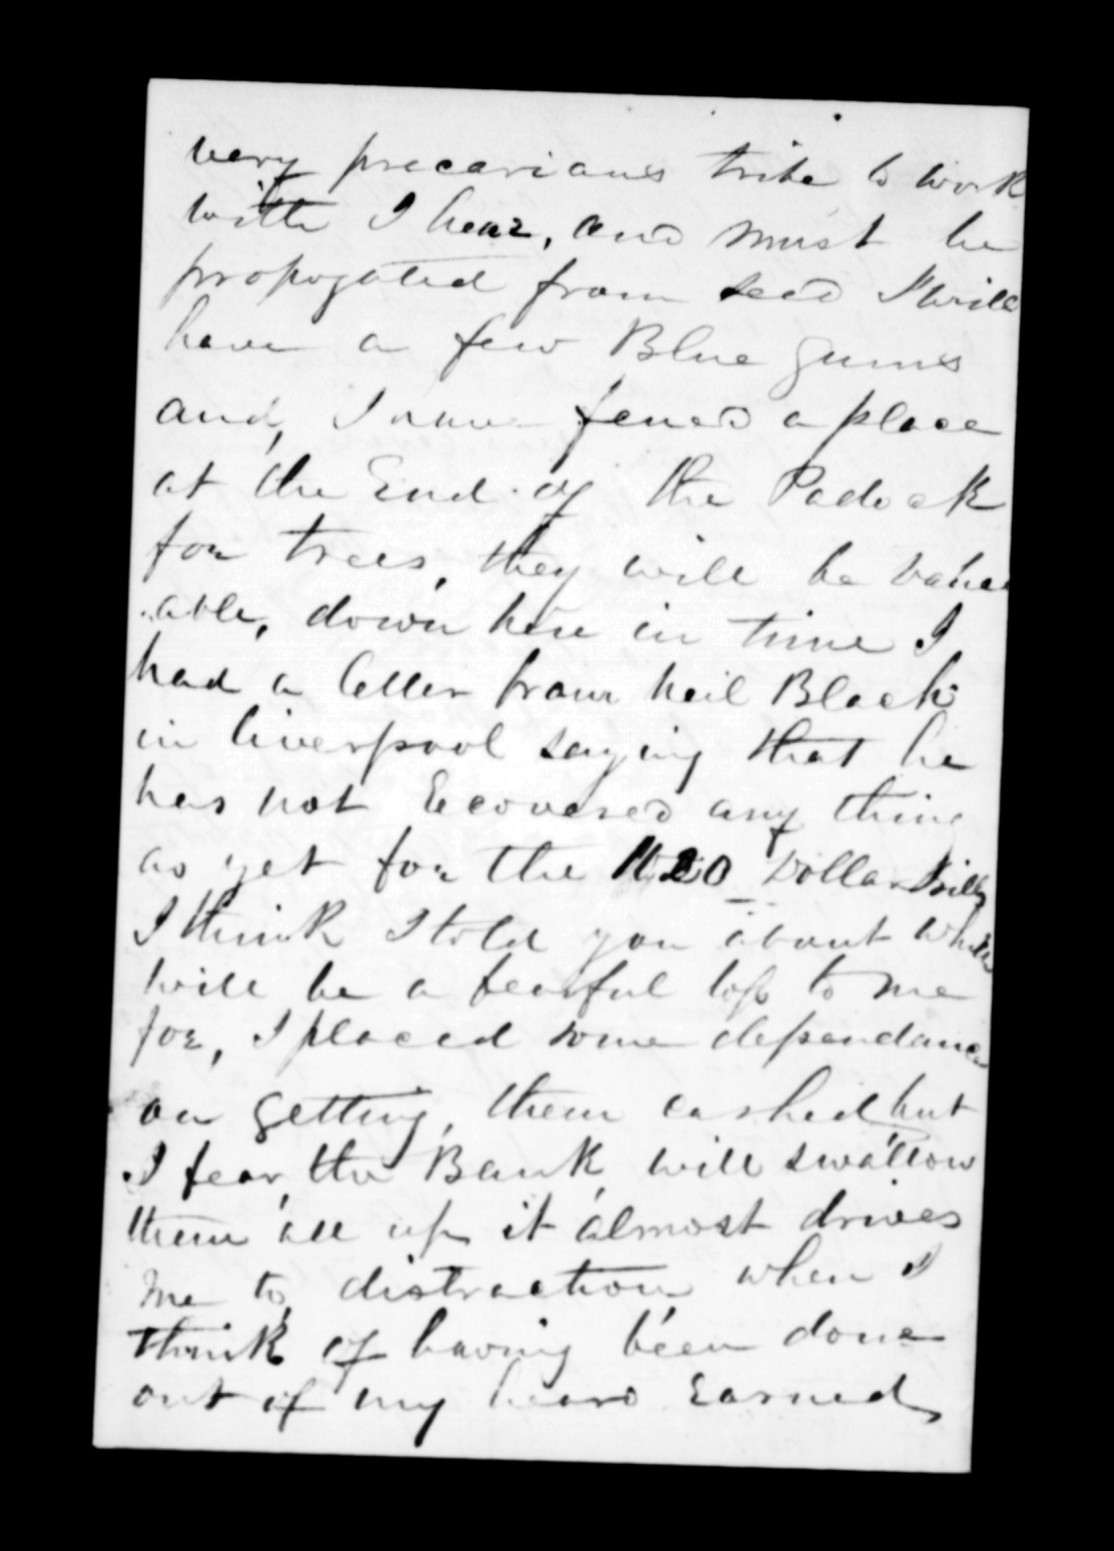 very precarious tribe to work
with I hear, and must be
propogated from seed I will
have a few Blue gums
and, I have fenced a place
at the End of the Padock
for trees, they will be value
able, down here in time I
had a letter from Neil Black
in Liverpool saying that he
has not Recovered any thing
as yet for the 1120 Dollar Bills
I think I told you about which
will be a fearful loss to me
for, I placed some dependance
on getting, them cashed, but
I fear, the Bank, will swallow
them all up it almost drives
me to distraction when I
think of having been done
out of my heard Earned